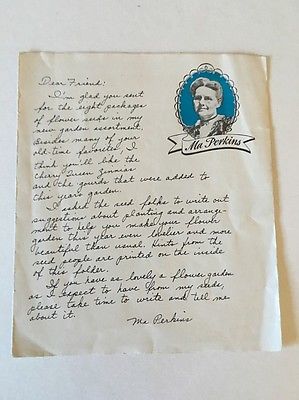 Dear Friend:
I'm glad you sent
for the eight packages
of flower seeds in my
new garden assortment.
Besides many of your
old-time favorites, I
think you'll like the
cherry Queen Zinnias
and the gourds that were added to
this year's garden.
I asked the seed folks to write out
suggestions about planting and arrange-
ment to help you make your flower
garden this year even lovelier and more
beautiful than usual. Hints from the
seed people are printed on the inside
of this folder.
If you have as lovely a flower garden
as I expect to have from my seeds,
please take time to write and tell me
about it.
Ma Perkins
Ma Perkins